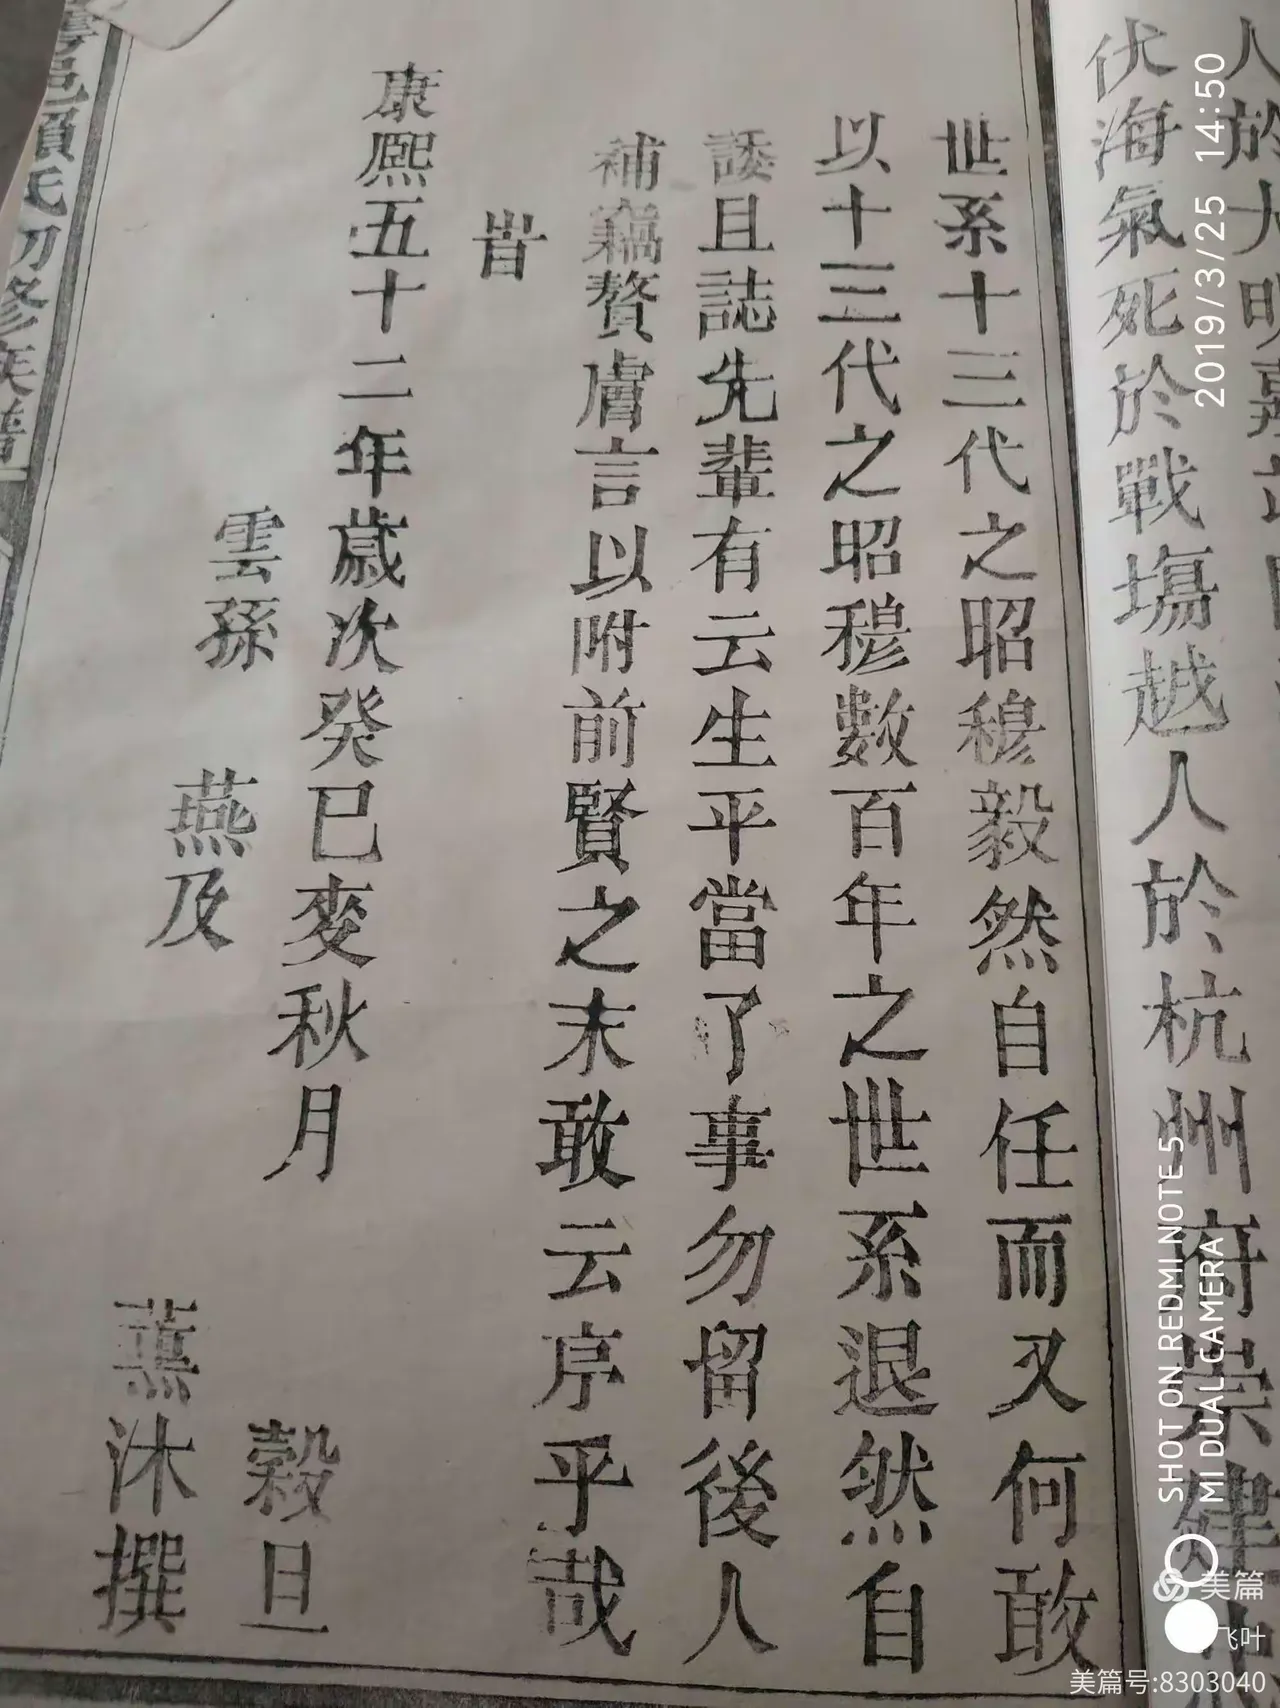 伏海氣死於戰塲越人於杭州府崇建
世系十三代之昭穆毅然自任而又何敢
以十三代之昭穆數百年之世系退然自
諉且誌先輩有云生平當了事勿留後人
補竊贅膚言以附前賢之末敢云序乎哉
旹
康熙五十二年歲次癸巳麥秋月 穀旦
雲孫 燕及 薰沐撰
氏初修族譜
2019/3/25 14:50
SHOT ON REDMI NOTE 5
MI DUAL CAMERA
美篇
飞叶
美篇号:8303040